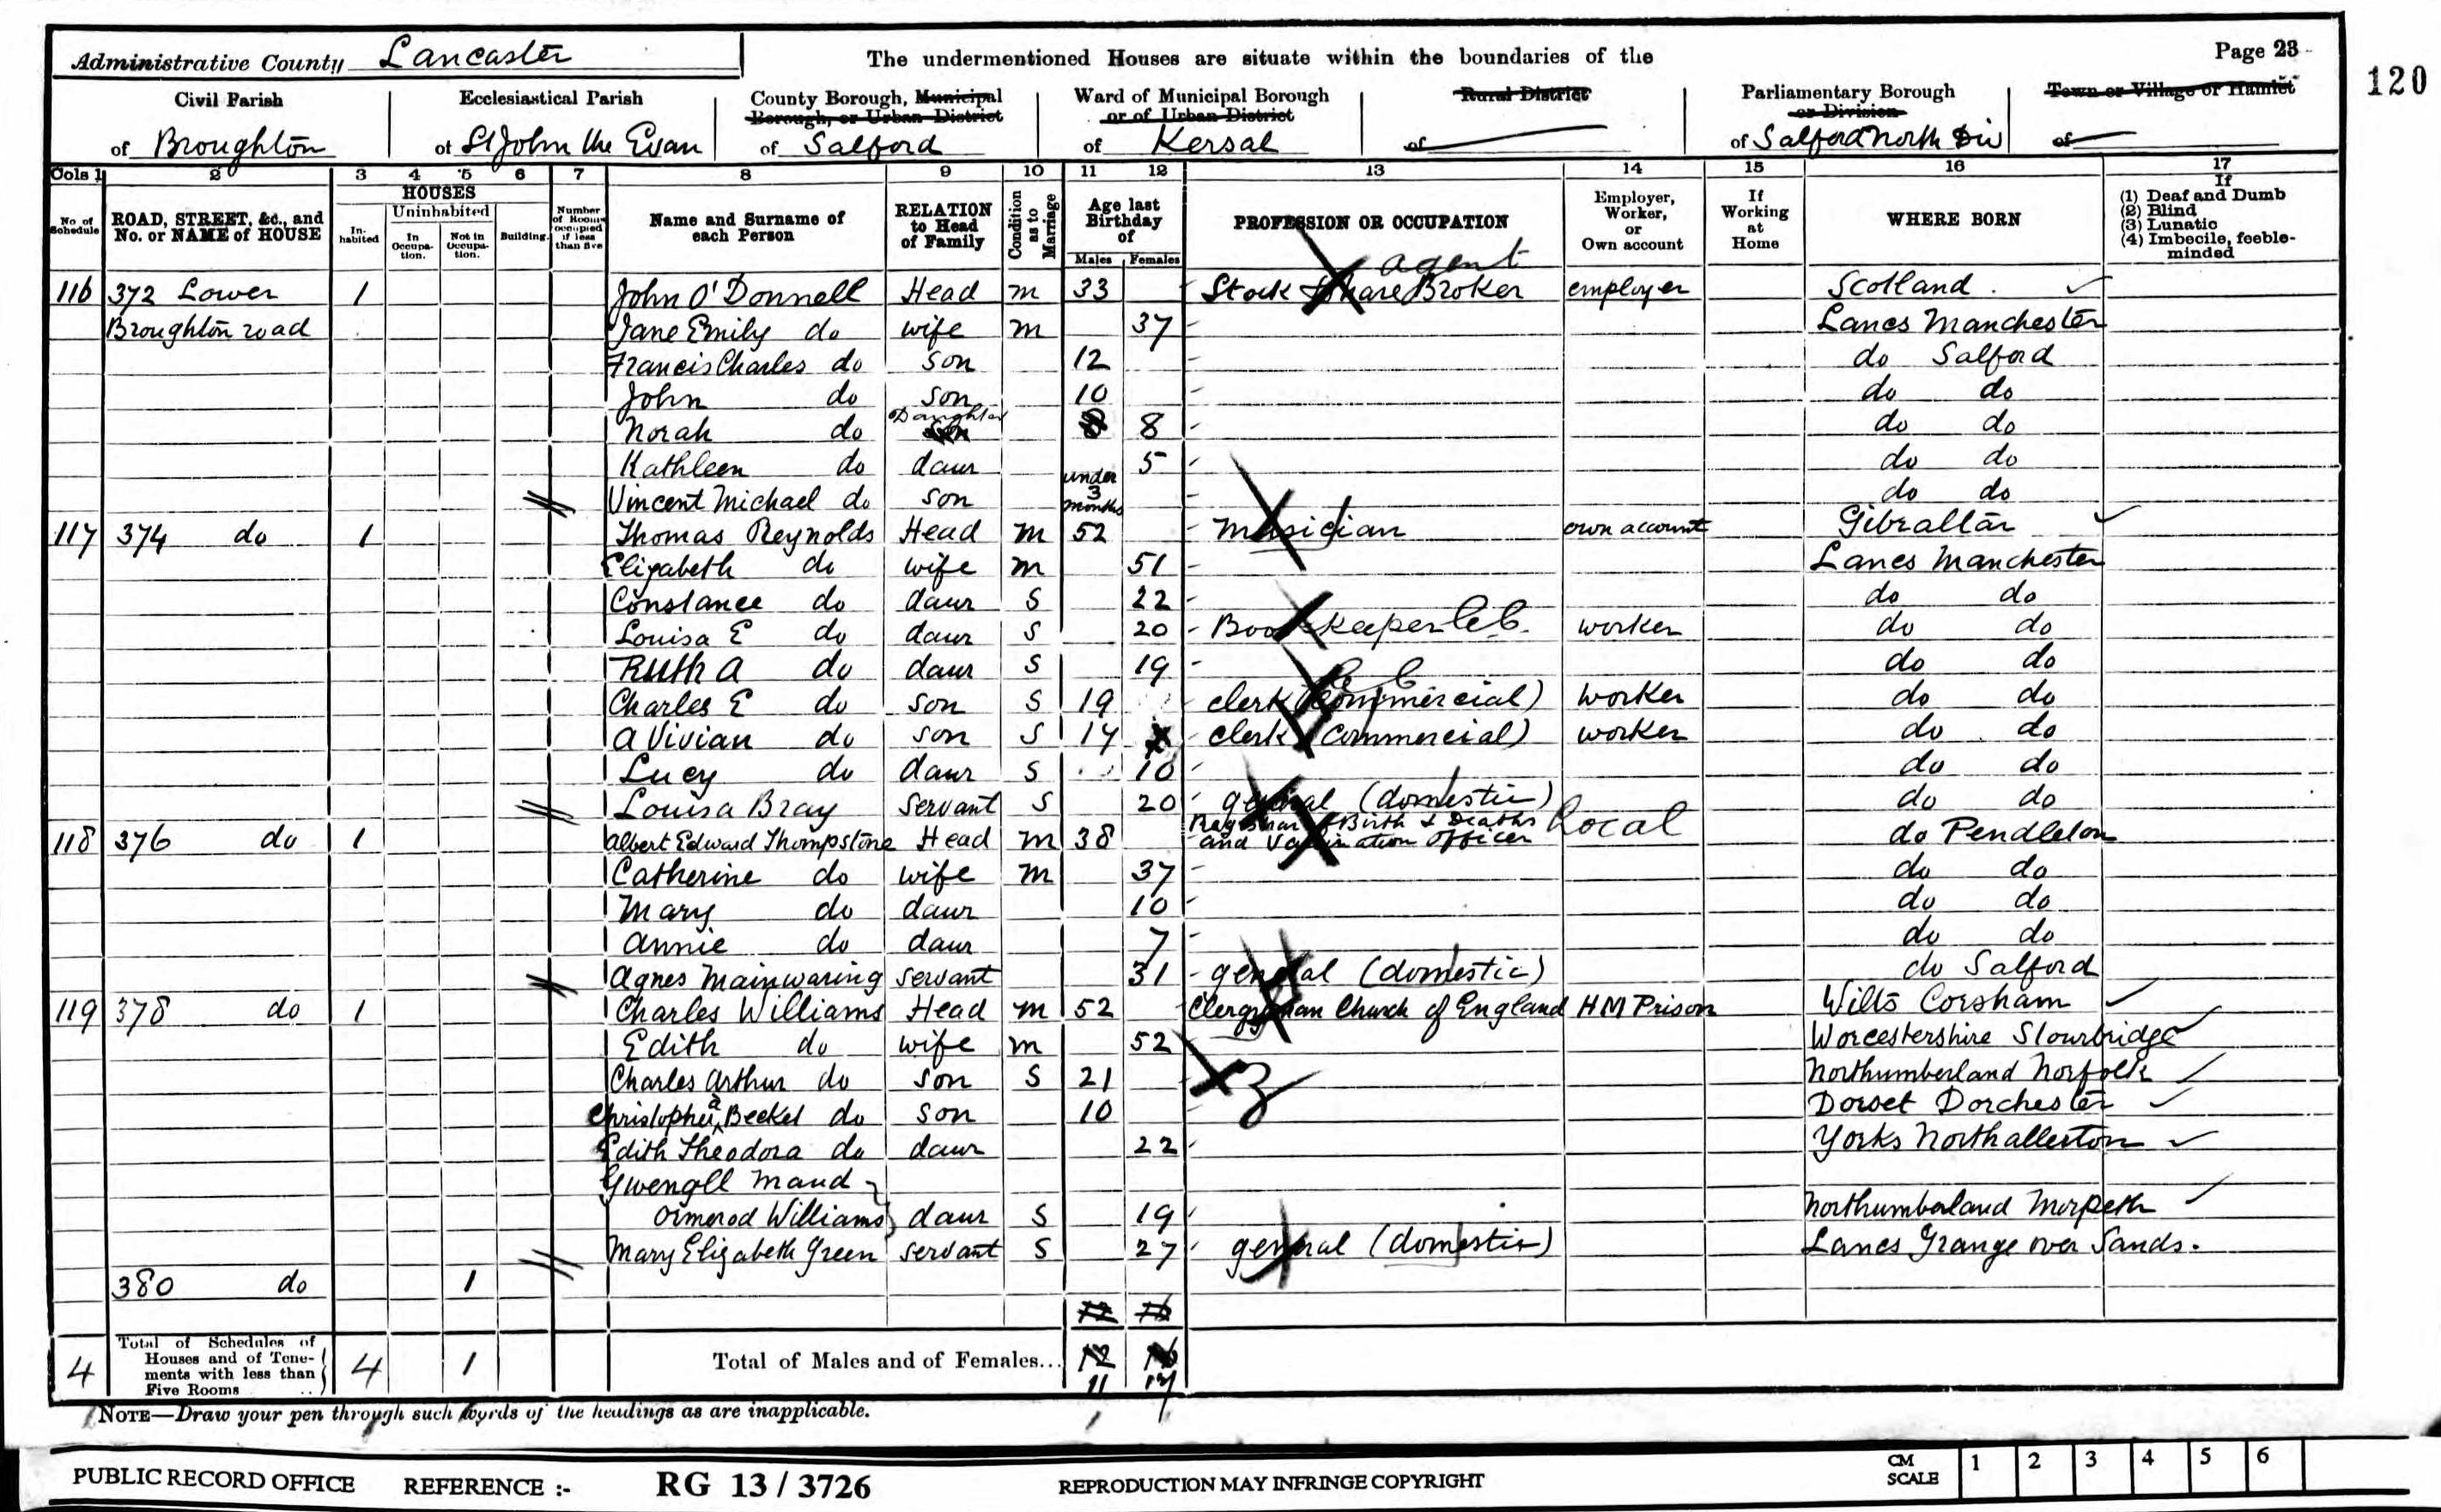 Administrative County Lancaster
The undermentioned Houses are situate within the boundaries of the
Page 23
120
Civil Parish
of Broughton
Ecclesiastical Parish
of St John the Evan
County Borough, Municipal
Borough, or Urban District
of Salford
Ward of Municipal Borough
or of Urban District
of Kersal
Rural District
of
Parliamentary Borough
or Division
of Salford North Div
Town or Village or Hamlet
of
Cols 1 2 3 4 5 6 7 8 9 10 11 12 13 14 15 16 17
No. of Schedule
ROAD, STREET, &c., and No. or NAME of HOUSE
HOUSES
Inhabited
Uninhabited
In Occupation.
Not in Occupation.
Building.
Number of Rooms occupied if less than five
Name and Surname of each Person
RELATION to Head of Family
Condition as to Marriage
Age last Birthday of
Males Females
PROFESSION OR OCCUPATION
Employer, Worker, or Own account
If Working at Home
WHERE BORN
If
(1) Deaf and Dumb
(2) Blind
(3) Lunatic
(4) Imbecile, feeble-minded
agent
116 372 Lower 1 John O'Donnell Head m 33 Stock & Share Broker employer Scotland
Broughton road Jane Emily do wife m 37 Lancs Manchester
Francis Charles do son 12 do Salford
John do son 10 do do
Daughter
Norah do 8 do do
Kathleen do daur 5 do do
Vincent Michael do son under 3 months do do
117 374 do 1 Thomas Reynolds Head m 52 musician own account Gibraltar
Elizabeth do wife m 51 Lancs Manchester
Constance do daur S 22 do do
Louisa E do daur S 20 Book keeper worker do do
Ruth A do daur S 19 do do
Charles E do son S 19 clerk (commercial) worker do do
A Vivian do son S 14 clerk (commercial) worker do do
Lucy do daur S 10 do do
Louisa Bray servant S 20 general (domestic) do do
118 376 do 1 Albert Edward Thompstone Head m 38 Registrar of Birth & Deaths and Vaccination officer Local do Pendleton
Catherine do wife m 37 do do
Mary do daur 10 do do
Annie do daur 7 do do
Agnes Mainwaring servant 31 general (domestic) do Salford
119 378 do 1 Charles Williams Head m 52 Clergyman Church of England HM Prison Wilts Corsham
Edith do wife m 52 Worcestershire Stourbridge
Charles Arthur do son S 21 Northumberland Norfolk
Christopher a Beckel do son 10 Dorset Dorchester
Edith Theodora do daur 22 Yorks Northallerton
Gwengll Maud
Ormerod Williams daur S 19 Northumberland Morpeth
Mary Elizabeth Green servant S 27 general (domestic) Lancs Grange over Sands.
380 do 1
4 Total of Schedules of Houses and of Tenements with less than Five Rooms 4 1 Total of Males and of Females... 12 16
11 17
NOTE—Draw your pen through such words of the headings as are inapplicable.
PUBLIC RECORD OFFICE REFERENCE :- RG 13 / 3726 REPRODUCTION MAY INFRINGE COPYRIGHT CM SCALE 1 2 3 4 5 6